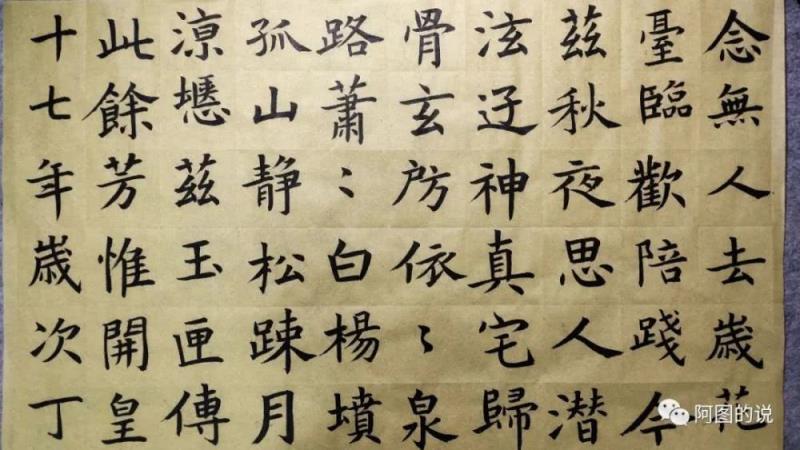 念無人去歲花
臺臨歡陪踐今
茲秋夜思人潜
泫迓神真宅歸
骨玄房依〻泉
路蕭〻白楊墳
孤山静松踈月
涼茲玉匣傳
此餘芳惟開皇
十七年歲次丁
阿图的说